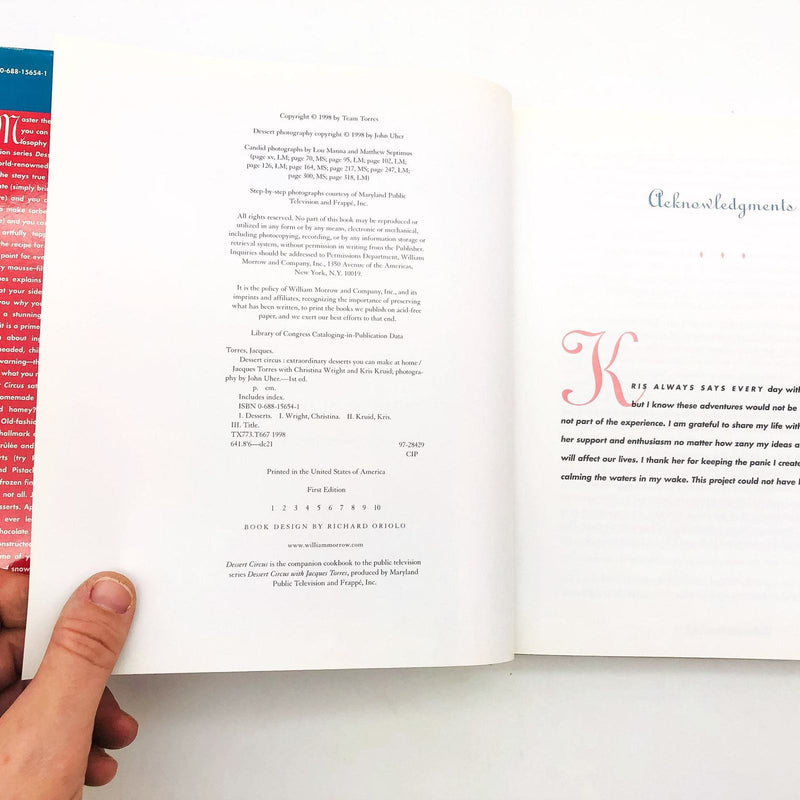 0-688-15654-1
Master the
you can
losophy
ion series Des
rld-renowned
he stays true
ate (simply brie
e) and you c
s make sorbe
) and you can
artfully topp
he recipe for
point for eve
y mousse-fill
es explains
at your side
ou why yo
a stunning
it is a prime
about ing
headed, chil
warning—th
what you n
Circus sat
omemade
d honey?
Old-fashion
hallmark
rûlée and
rts (try
nd Pistach
frozen fin
not all. J
sserts. Ap
ever le
chocolate.
constructed
me of y
snow
Copyright © 1998 by Team Torres
Dessert photography copyright © 1998 by John Uher
Candid photographs by Lou Manna and Matthew Septimus
(page xv, LM; page 70, MS; page 95, LM; page 102, LM;
page 126, LM; page 164, MS; page 217, MS; page 247, LM;
page 300, MS; page 318, LM)
Step-by-step photographs courtesy of Maryland Public
Television and Frappé, Inc.
All rights reserved. No part of this book may be reproduced or
utilized in any form or by any means, electronic or mechanical,
including photocopying, recording, or by any information storage or
retrieval system, without permission in writing from the Publisher.
Inquiries should be addressed to Permissions Department, William
Morrow and Company, Inc., 1350 Avenue of the Americas,
New York, N.Y. 10019.
It is the policy of William Morrow and Company, Inc., and its
imprints and affiliates, recognizing the importance of preserving
what has been written, to print the books we publish on acid-free
paper, and we exert our best efforts to that end.
Library of Congress Cataloging-in-Publication Data
Torres, Jacques.
Dessert circus : extraordinary desserts you can make at home /
Jacques Torres with Christina Wright and Kris Kruid; photogra-
phy by John Uher.—1st ed.
p. cm.
Includes index.
ISBN 0-688-15654-1
1. Desserts. I. Wright, Christina. II. Kruid, Kris.
III. Title.
TX773.T667 1998
641.8'6—dc21 97-28429
CIP
Printed in the United States of America
First Edition
1 2 3 4 5 6 7 8 9 10
BOOK DESIGN BY RICHARD ORIOLO
www.williammorrow.com
Dessert Circus is the companion cookbook to the public television
series Dessert Circus with Jacques Torres, produced by Maryland
Public Television and Frappé, Inc.
Acknowledgments
KRIS ALWAYS SAYS EVERY day with
but I know these adventures would not be
not part of the experience. I am grateful to share my life with
her support and enthusiasm no matter how zany my ideas a
will affect our lives. I thank her for keeping the panic I create
calming the waters in my wake. This project could not have